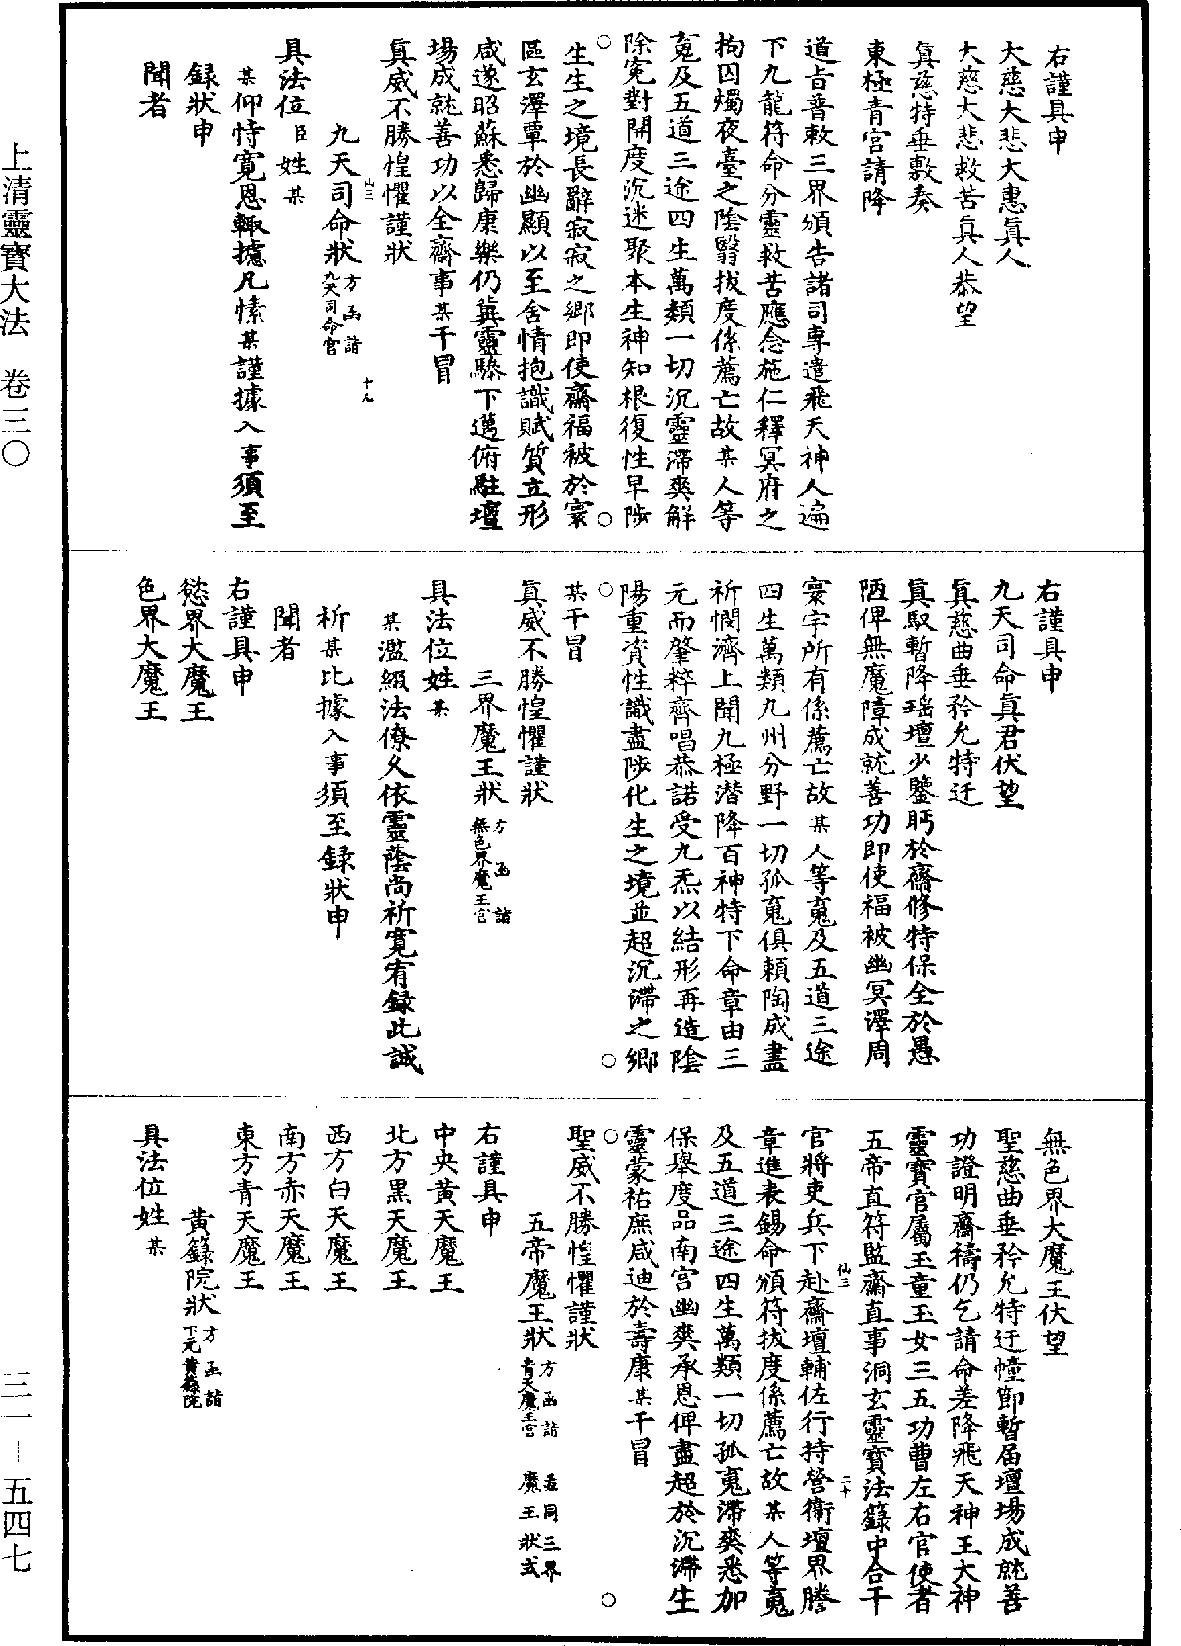 上清靈寶大法　卷三〇
三一－五四七
右謹具申
大慈大悲大惠眞人
大慈大悲救苦眞人恭望
眞慈特垂敷奏
東極青宮請降
道旨普敕三界頒告諸司專遣飛天神人遍
下九龍符命分靈救苦應念施仁釋冥府之
拘囚燭夜臺之陰翳拔度係薦亡故某人等
䰟及五道三途四生萬類一切沉靈滯爽解
除寃對開度沉迷聚本生神知根復性早陟
○　○
生生之境長辭寂寂之鄉即使齋福被於寰
區玄澤覃於幽顯以至含情抱識賦質立形
咸遂昭蘇悉歸康樂仍冀靈驂下邁俯駐壇
場成就善功以全齋事某干冒
眞威不勝惶懼謹狀
仙三　十九
九天司命狀方函詣九天司命宮
具法位臣姓某
某仰恃寬恩輙攄凡愫某謹據入事須至
錄狀申
聞者
右謹具申
九天司命眞君伏望
眞慈曲垂矜允特迂
眞馭暫降瑶壇少鑒眄於齋修特保全於愚
陋俾無魔障成就善功即使福被幽冥澤周
寰宇所有係薦亡故某人等䰟及五道三途
四生萬類九州分野一切孤䰟俱頼陶成盡
祈憫濟上聞九極潛降百神特下命章由三
元而肇粹齊唱恭諾受九炁以結形再造陰
陽重資性識盡陟化生之境並超沉滯之鄉
○　○
某干冒
眞威不勝惶懼謹狀
三界魔王狀方函詣無色界魔王宮
具法位姓某
某濫綴法僚久依靈蔭尚祈寬宥録此誠
祈某比據入事須至録狀申
聞者
右謹具申
慾界大魔王
色界大魔王
無色界大魔王伏望
聖慈曲垂矜允特迂幢節暫届壇場成就善
功證明齋禱仍乞請命差降飛天神王大神
靈寶官屬玉童玉女三五功曹左右官使者
五帝直符監齋直事洞玄靈寶法籙中合干
仙三　二十
官將吏兵下赴齋壇輔佐行持營衛壇界謄
章進表錫命頒符拔度係薦亡故某人等䰟
及五道三途四生萬類一切孤䰟滯爽悉加
保舉度品南宮幽爽承恩俾盡超於沉滯生
靈蒙祐庶咸迪於壽康某干冒
○　○
聖威不勝惶懼謹狀
五帝魔王狀方函詣青天魔王宮　並同三界魔王狀式
右謹具申
中央黄天魔王
北方黑天魔王
西方白天魔王
南方赤天魔王
東方青天魔王
黄籙院狀方函詣下元黄籙院
具法位姓某